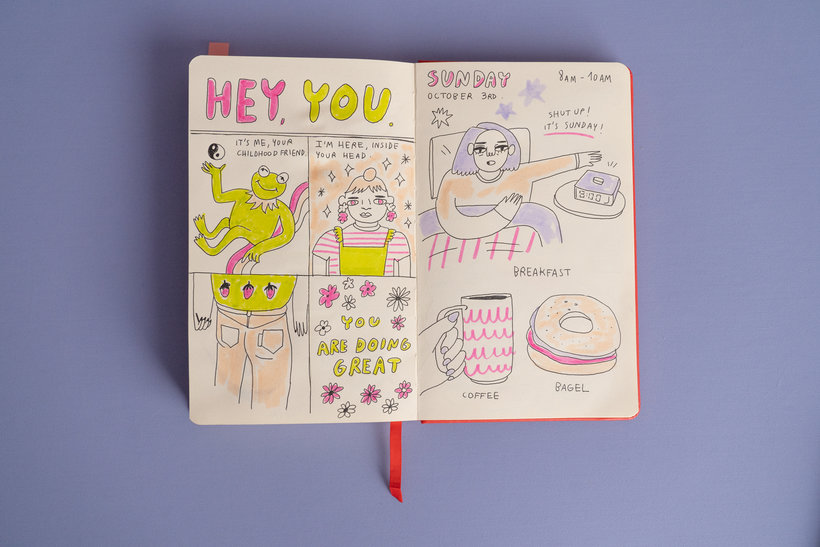 HEY, YOU.
IT'S ME, YOUR
CHILDHOOD FRIEND.
I'M HERE, INSIDE
YOUR HEAD.
YOU
ARE DOING
GREAT
SUNDAY
8AM - 10AM
OCTOBER 3RD.
SHUT UP!
IT'S SUNDAY!
8:00
BREAKFAST
COFFEE
BAGEL